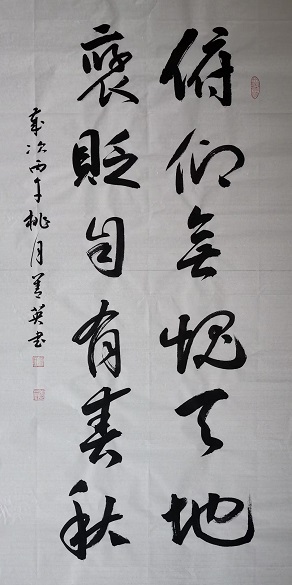 俯仰无愧天地
褒貶自有春秋
歲次丙午桃月善英书